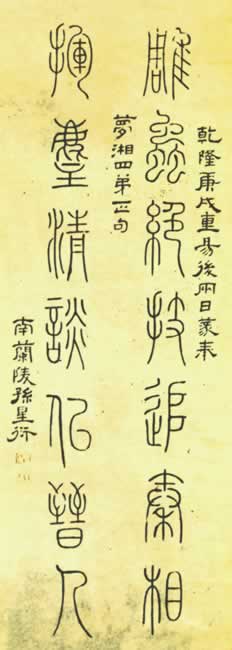 乾隆庚戌重昜後兩日篆奉
雕蟲絕技追秦相
夢湘四弟正句
揮麈清談似晉人
南蘭陵孫星衍